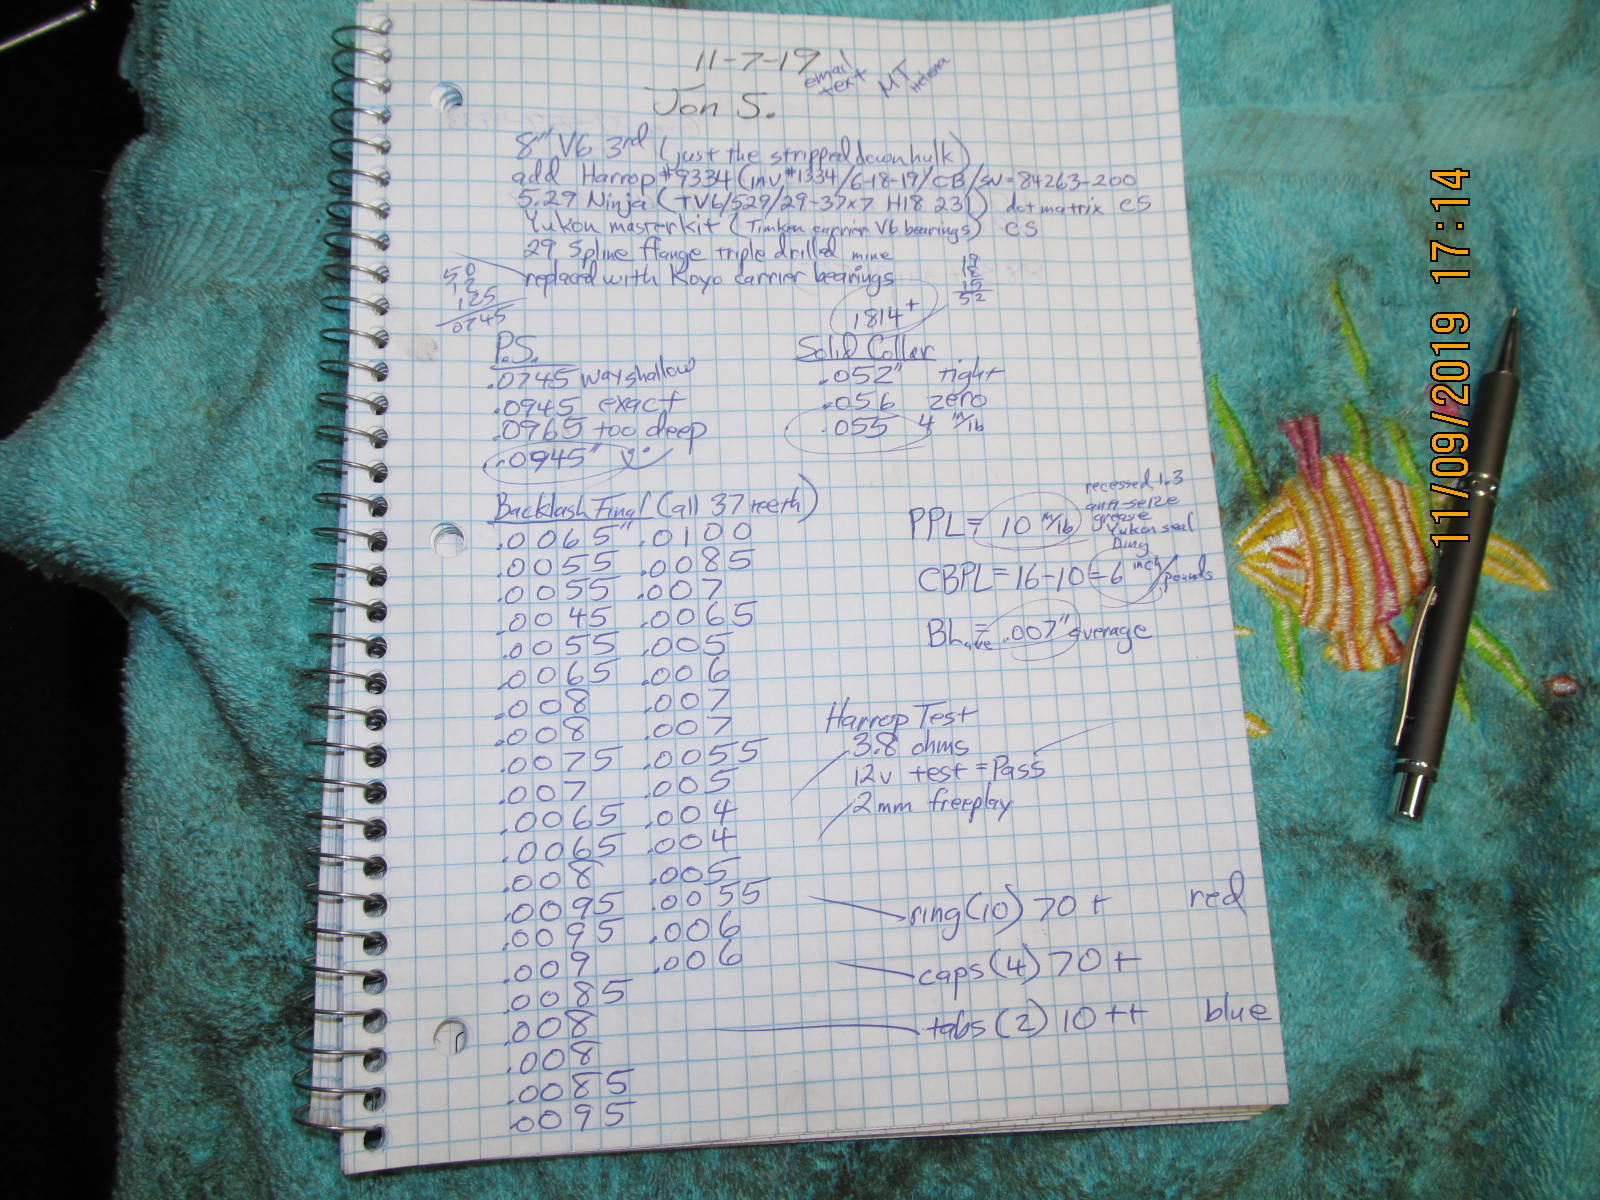 11-7-19
email
text
MT
Helena
Jon S.
8" V6 3rd (just the stripped down hulk)
add Harrop #9334 (inv #1334/6-18-19/CB/SN=84263-200
5.29 Ninja (TV6/529/29-37x7 H18 231) dot matrix CS
Yukon master kit (Timken carrier V6 bearings) CS
29 Spline flange triple drilled mine
replaced with Koyo carrier bearings
50
12
125
.0745
19
18
15
52
1.814+
P.S.
.0745 way shallow
.0945 exact
.0965 too deep
.0945"
Solid Coller
.052" tight
.056 zero
.055 4 in/lb
Backlash Final (all 37 teeth)
.0065" .0100
.0055 .0085
.0055 .007
.0045 .0065
.0055 .005
.0065 .006
.008 .007
.008 .007
.0075 .0055
.007 .005
.0065 .004
.0065 .004
.008 .005
.0095 .0055
.0095 .006
.009 .006
.0085
.008
.008
.0085
.0095
PPL = 10 in/lb
recessed 1.3
anti-seize
grease
Yukon seal
Ding
CBPL = 16-10 = 6 inch/pounds
BL ave = .007" average
Harrop Test
3.8 ohms
12v test = Pass
2mm freeplay
ring (10) 70+ red
caps (4) 70+
tabs (2) 10++ blue
11/09/2019 17:14